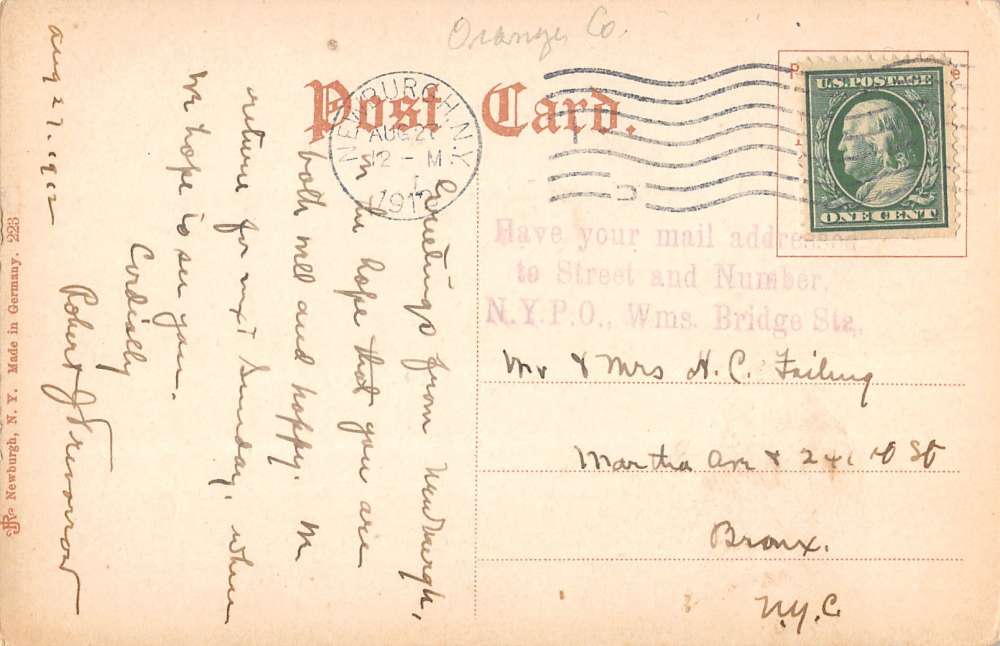 Orange Co.
Post Card.
NEWBURGH, N.Y.
AUG 27
12 - M
1912
U.S. POSTAGE
ONE CENT
Have your mail addressed
to Street and Number,
N.Y.P.O., Wms. Bridge Sta.
Mr & Mrs H. C. Failing
Martha Ave & 241 st St
Bronx.
N.Y.C
Aug 27. 1912
Greetings from Newburgh,
in the hope that you are
both well and happy. We
return for next Sunday, when
we hope to see you.
Cordially
Robert J
Newburgh, N. Y. Made in Germany. 223